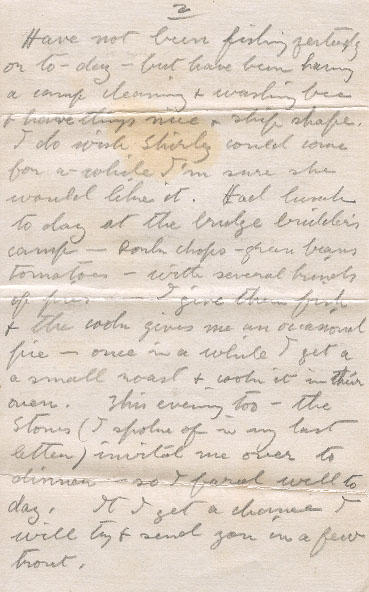 2
Have not been fishing yesterday
or to-day - but have been having
a camp cleaning & washing bee
& have things nice & ship shape.
I do wish Shirley could come
for a while I'm sure she
would like it. Had lunch
to day at the bridge builders
camp - Pork chops - green beans
tomatoes - with several kinds
of pies - I give them fish
& the cook gives me an occasional
pie - once in a while I get a
a small roast & cook it in their
oven. This evening too - the
Stones (I spoke of in my last
letter) invited me over to
dinner - so I fared well to
day. If I get a chance I
will try & send you in a few
trout.